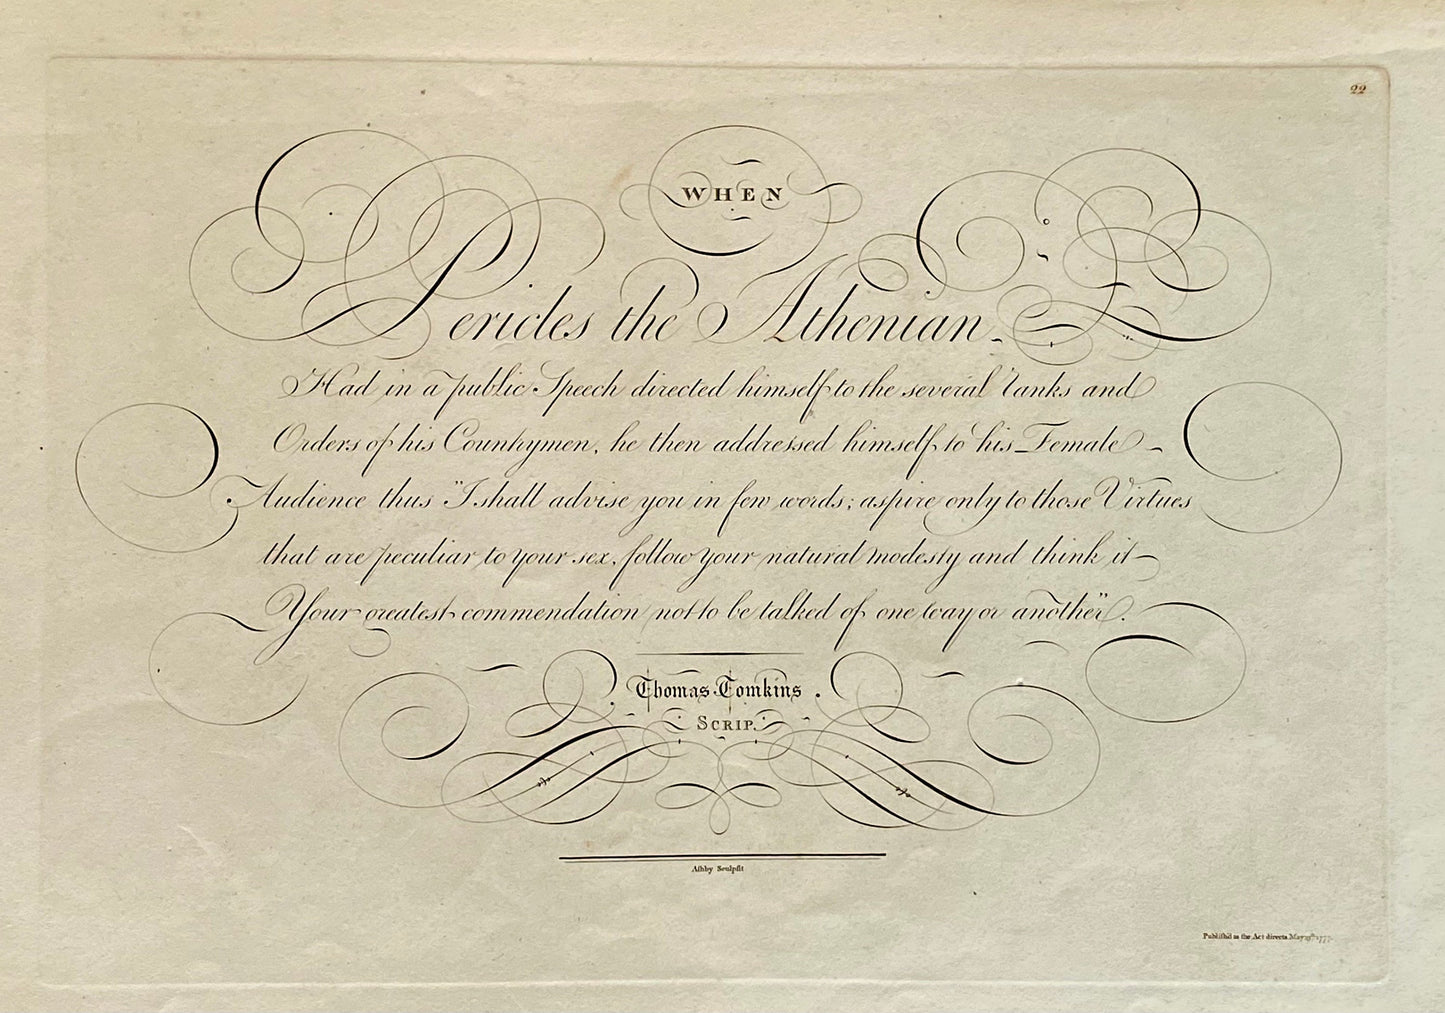 22
WHEN
Pericles the Athenian
Had in a public Speech directed himself to the several ranks and
Orders of his Countrymen, he then addressed himself to his Female
Audience thus "I shall advise you in few words; aspire only to those Virtues
that are peculiar to your sex, follow your natural modesty and think it
Your greatest commendation not to be talked of one way or another".
Thomas Tomkins.
SCRIP.
Aſhby Sculpſit
Publiſh'd as the Act directs May 19th 1777.